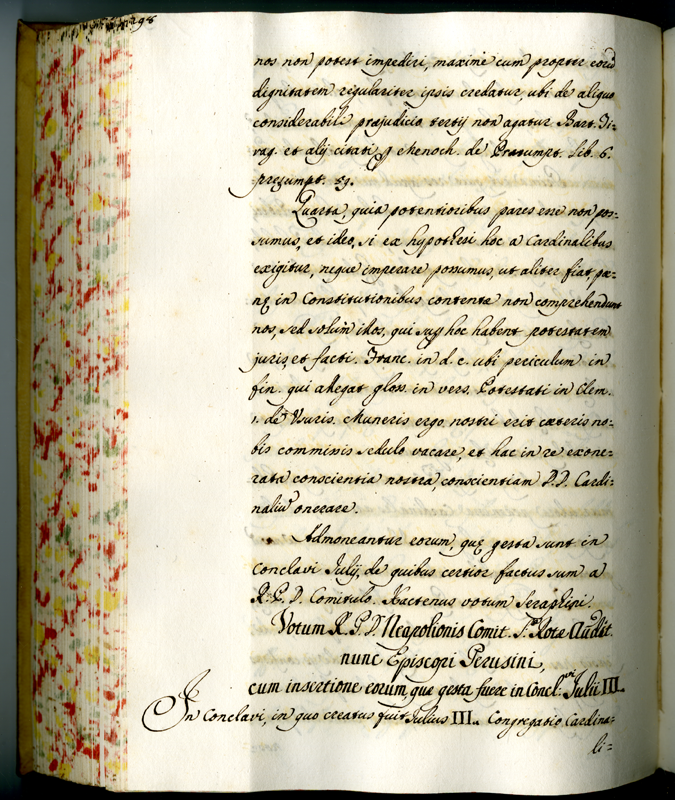 298
nos non potest impediri, maximè cum propter eorũ
dignitatem regulariter ipsis credatur, ubi de aliquo
considerabili præjudicio tertij non agatur Bart. Ti-
raq. et alij citati p Menoch. de Præsumpt. lib. 6.
presumpt. 59.
Quarta, quia potentioribus pares esse non pos=
sumus, et ideo, si ex hypothesi hoc a Cardinalibus
exigitur, neque imperare possumus, ut aliter fiat, pæ-
nę in Constitutionibus contentæ non comprehendunt
nos, sed solum illos, qui sup hoc habent potestatem
juris, et facti. Franc. in d. c. ubi periculum in
fin. qui allegat gloss. in vers. Potestati in Clem.
1. de Usuris. Muneris ergo nostri erit cæteris no-
bis commissis sedulo vacare, et hac in re exone-
rata conscientia nostra, conscientiam D.D. Cardi-
naliũ onerare.
Admoneantur eorum, quę gesta sunt in
Conclavi Julij, de quibus certior factus sum a
R. P. D. Comitulo. Hactenus votum Seraphini.
Votum R. P. D. Neapolionis Comit. S. Rotæ Audit.
nunc Episcopi Perusini,
cum insertione eorum, quæ gesta fuere in Concl.vi Julii III.
In Conclavi, in quo creatus fuit Julius III. Congregatio Cardina-
li=